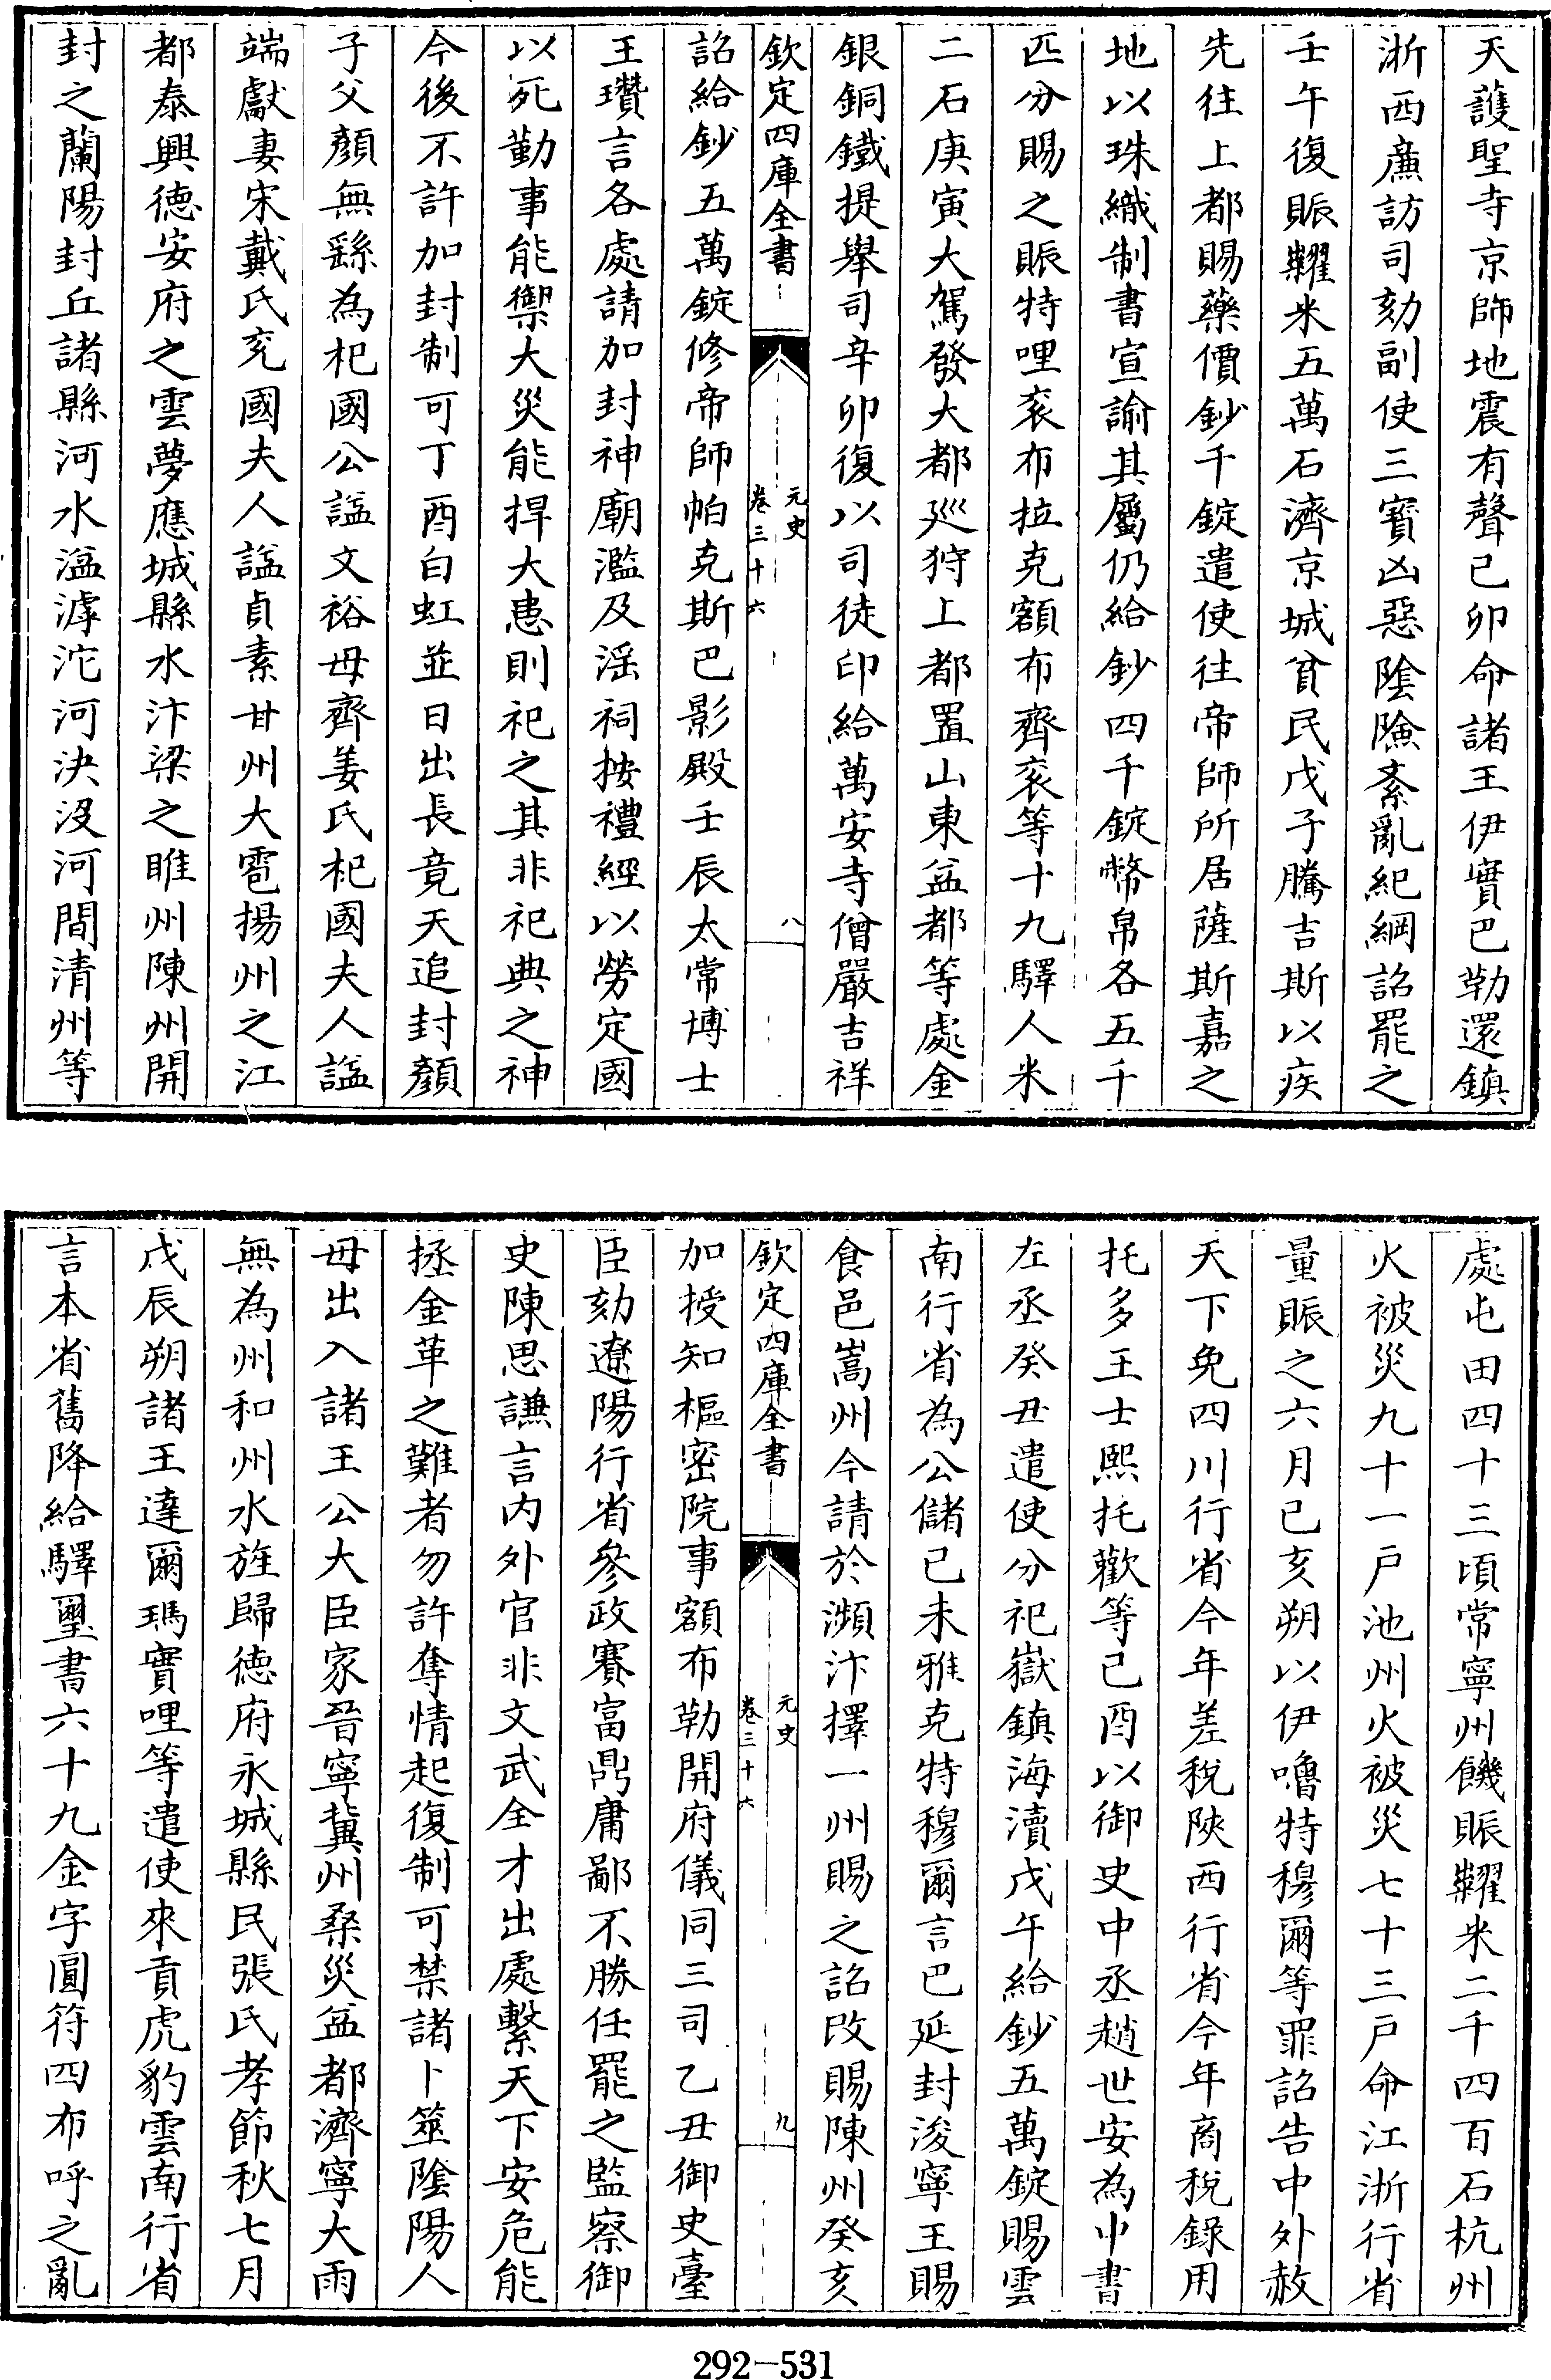 天護聖寺京師地震有聲己卯命諸王伊實巴勒還鎮
浙西廉訪司劾副使三寳凶惡隂險紊亂紀綱詔罷之
壬午復賑糶米五萬石濟京城貧民戊子騰吉斯以疾
先往上都賜藥價鈔千錠遣使往帝師所居薩斯嘉之
地以珠織制書宣諭其屬仍給鈔四千錠幣帛各五千
匹分賜之賑特哩衮布拉克額布齊衮等十九驛人米
二石庚寅大駕發大都廵狩上都置山東益都等處金
銀銅鐵提舉司辛卯復以司徒印給萬安寺僧嚴吉祥
欽定四庫全書
元史
卷三十六
八
詔給鈔五萬錠修帝師帕克斯巴影殿壬辰太常博士
王瓚言各處請加封神廟濫及淫祠按禮經以勞定國
以死勤事能禦大災能捍大患則祀之其非祀典之神
今後不許加封制可丁酉白虹並日出長竟天追封顏
子父顏無繇為杞國公諡文裕母齊姜氏杞國夫人諡
端獻妻宋戴氏兖國夫人諡貞素甘州大雹揚州之江
都泰興德安府之雲夢應城縣水汴梁之睢州陳州開
封之蘭陽封丘諸縣河水溢滹沱河決沒河間清州等
處屯田四十三頃常寧州饑賑糶米二千四百石杭州
火被災九十一戶池州火被災七十三戶命江浙行省
量賑之六月己亥朔以伊嚕特穆爾等罪詔告中外赦
天下免四川行省今年差稅陜西行省今年商稅錄用
托多王士熙托歡等己酉以御史中丞趙世安為中書
左丞癸丑遣使分祀嶽鎮海瀆戊午給鈔五萬錠賜雲
南行省為公儲己未雅克特穆爾言巴延封浚寧王賜
食邑嵩州今請於瀕汴擇一州賜之詔改賜陳州癸亥
欽定四庫全書
元史
卷三十六
九
加授知樞密院事額布勒開府儀同三司乙丑御史臺
臣劾遼陽行省參政賽富鼎庸鄙不勝任罷之監察御
史陳思謙言内外官非文武全才出處繫天下安危能
拯金革之難者勿許奪情起復制可禁諸卜筮隂陽人
毋出入諸王公大臣家晉寧冀州桑災益都濟寧大雨
無為州和州水旌歸德府永城縣民張氏孝節秋七月
戊辰朔諸王達爾瑪實哩等遣使來貢虎豹雲南行省
言本省舊降給驛璽書六十九金字圓符四布呼之亂
292-531